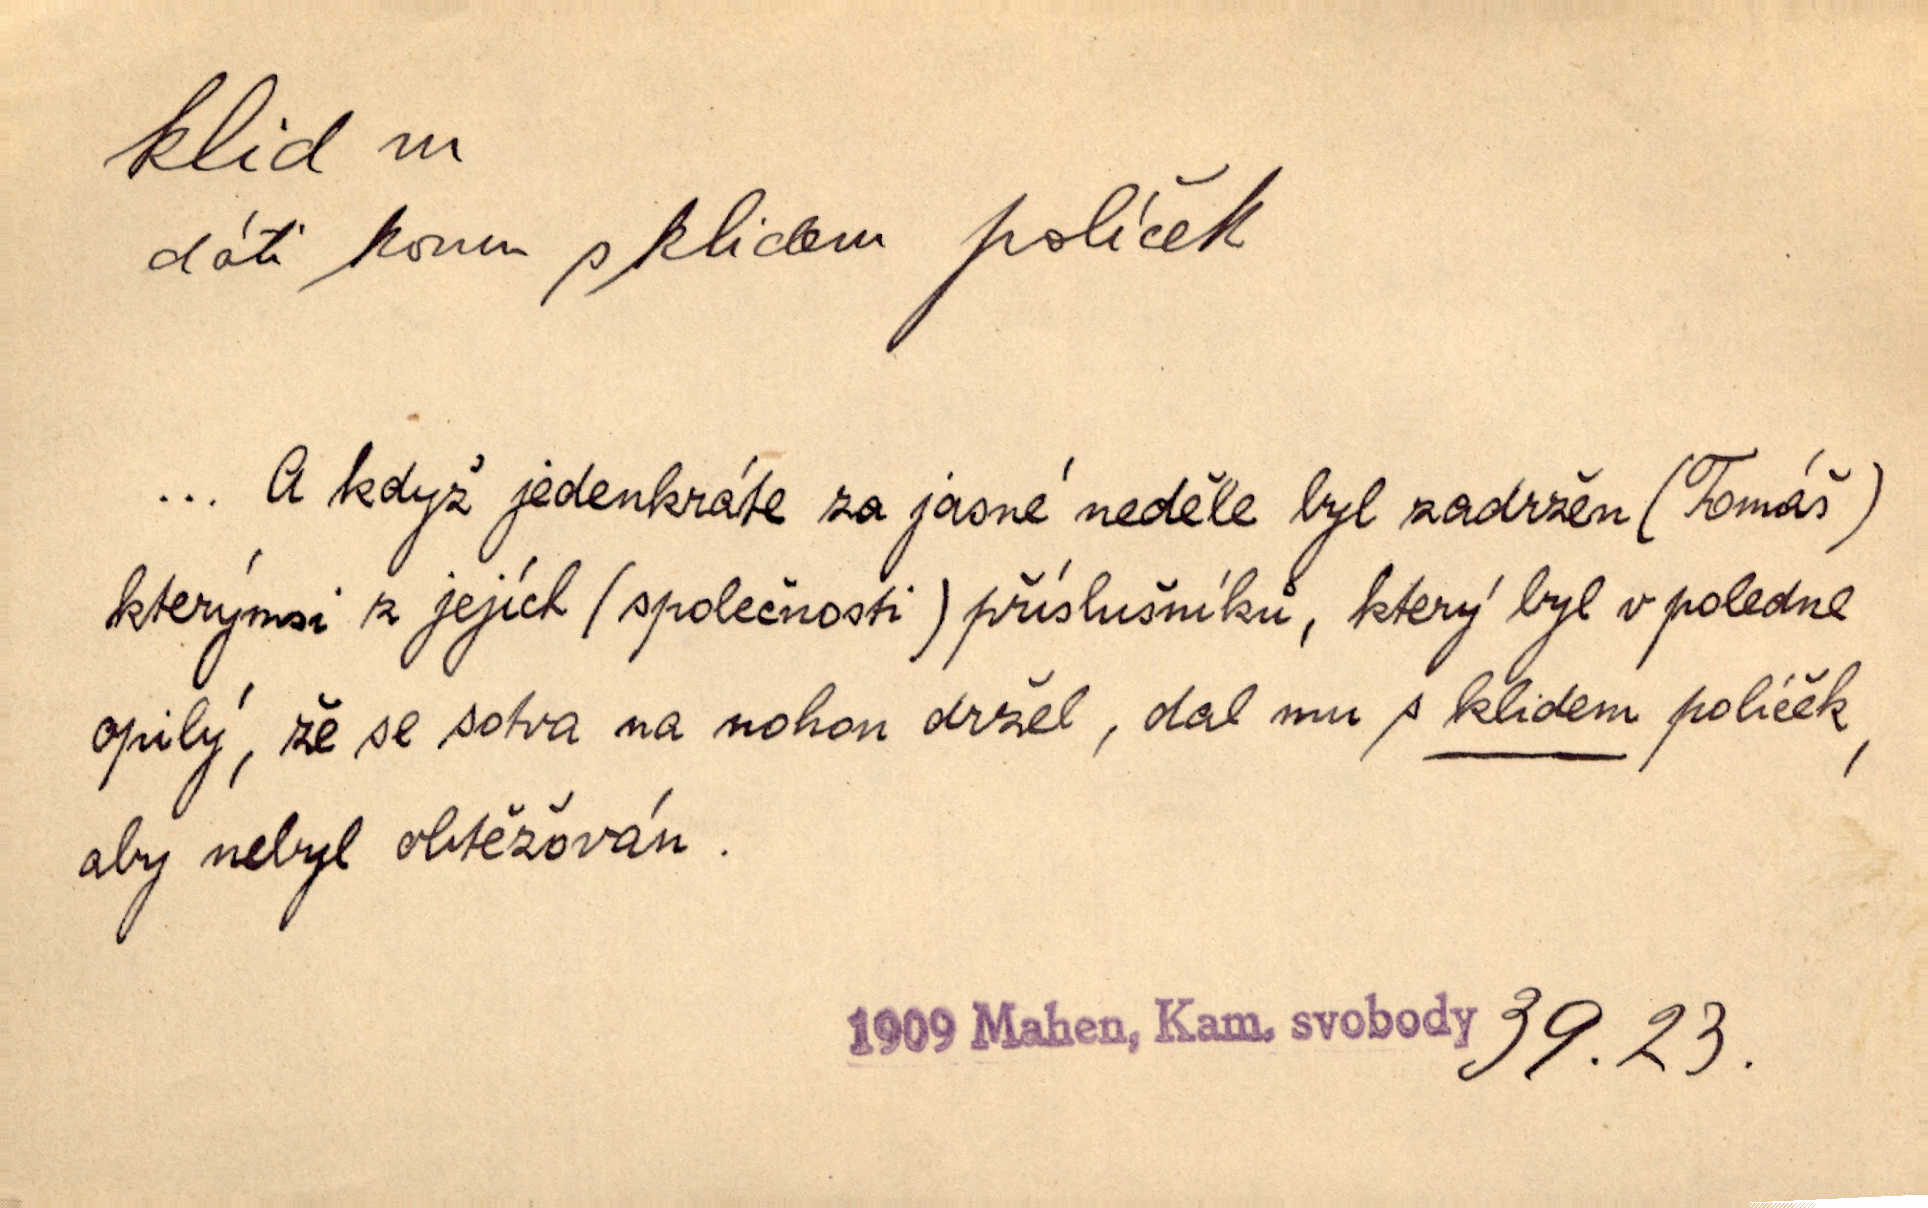 klid m
dáti komu s klidem políček
... A když jedenkráte za jasné neděle byl zadržen (Tomáš)
kterýmsi z jejích (společnosti) příslušníků, který byl v poledne
opilý, že se sotva na nohou držel, dal mu s klidem políček,
aby nebyl obtěžován.
1909 Mahen, Kam. svobody 39.23.